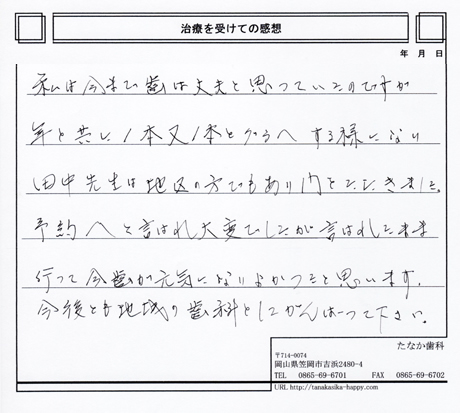 治療を受けての感想
年 月 日
私は今まで歯は丈夫と思っていたのですが
年と共に1本又1本とグラグラする様になり
田中先生は地区の方でもあり内といただきました。
予約へと言はれ大変でしたが言はれしまま
行って今歯が元気になりよかったと思います。
今後とも地域の歯科としてがんばって下さい。
たなか歯科
〒714-0074
岡山県笠岡市吉浜2480-4
TEL 0865-69-6701 FAX 0865-69-6702
URL http://tanakasika-happy.com